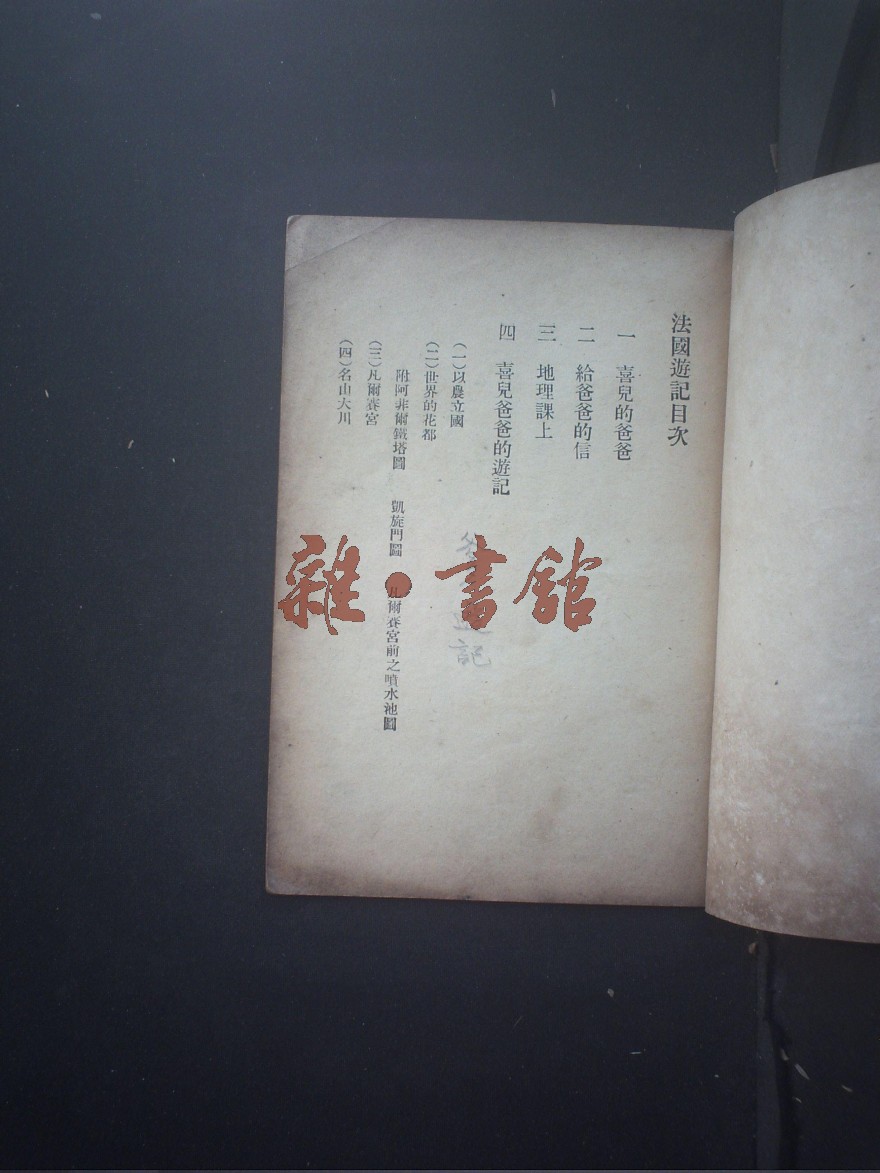 法國遊記目次
一　喜兒的爸爸
二　給爸爸的信
三　地理課上
四　喜兒爸爸的遊記
(一)以農立國
(二)世界的花都
附阿非爾鐵塔圖　凱旋門圖　凡爾賽宮前之噴水池圖
(三)凡爾賽宮
(四)名山大川
記
雜·書館